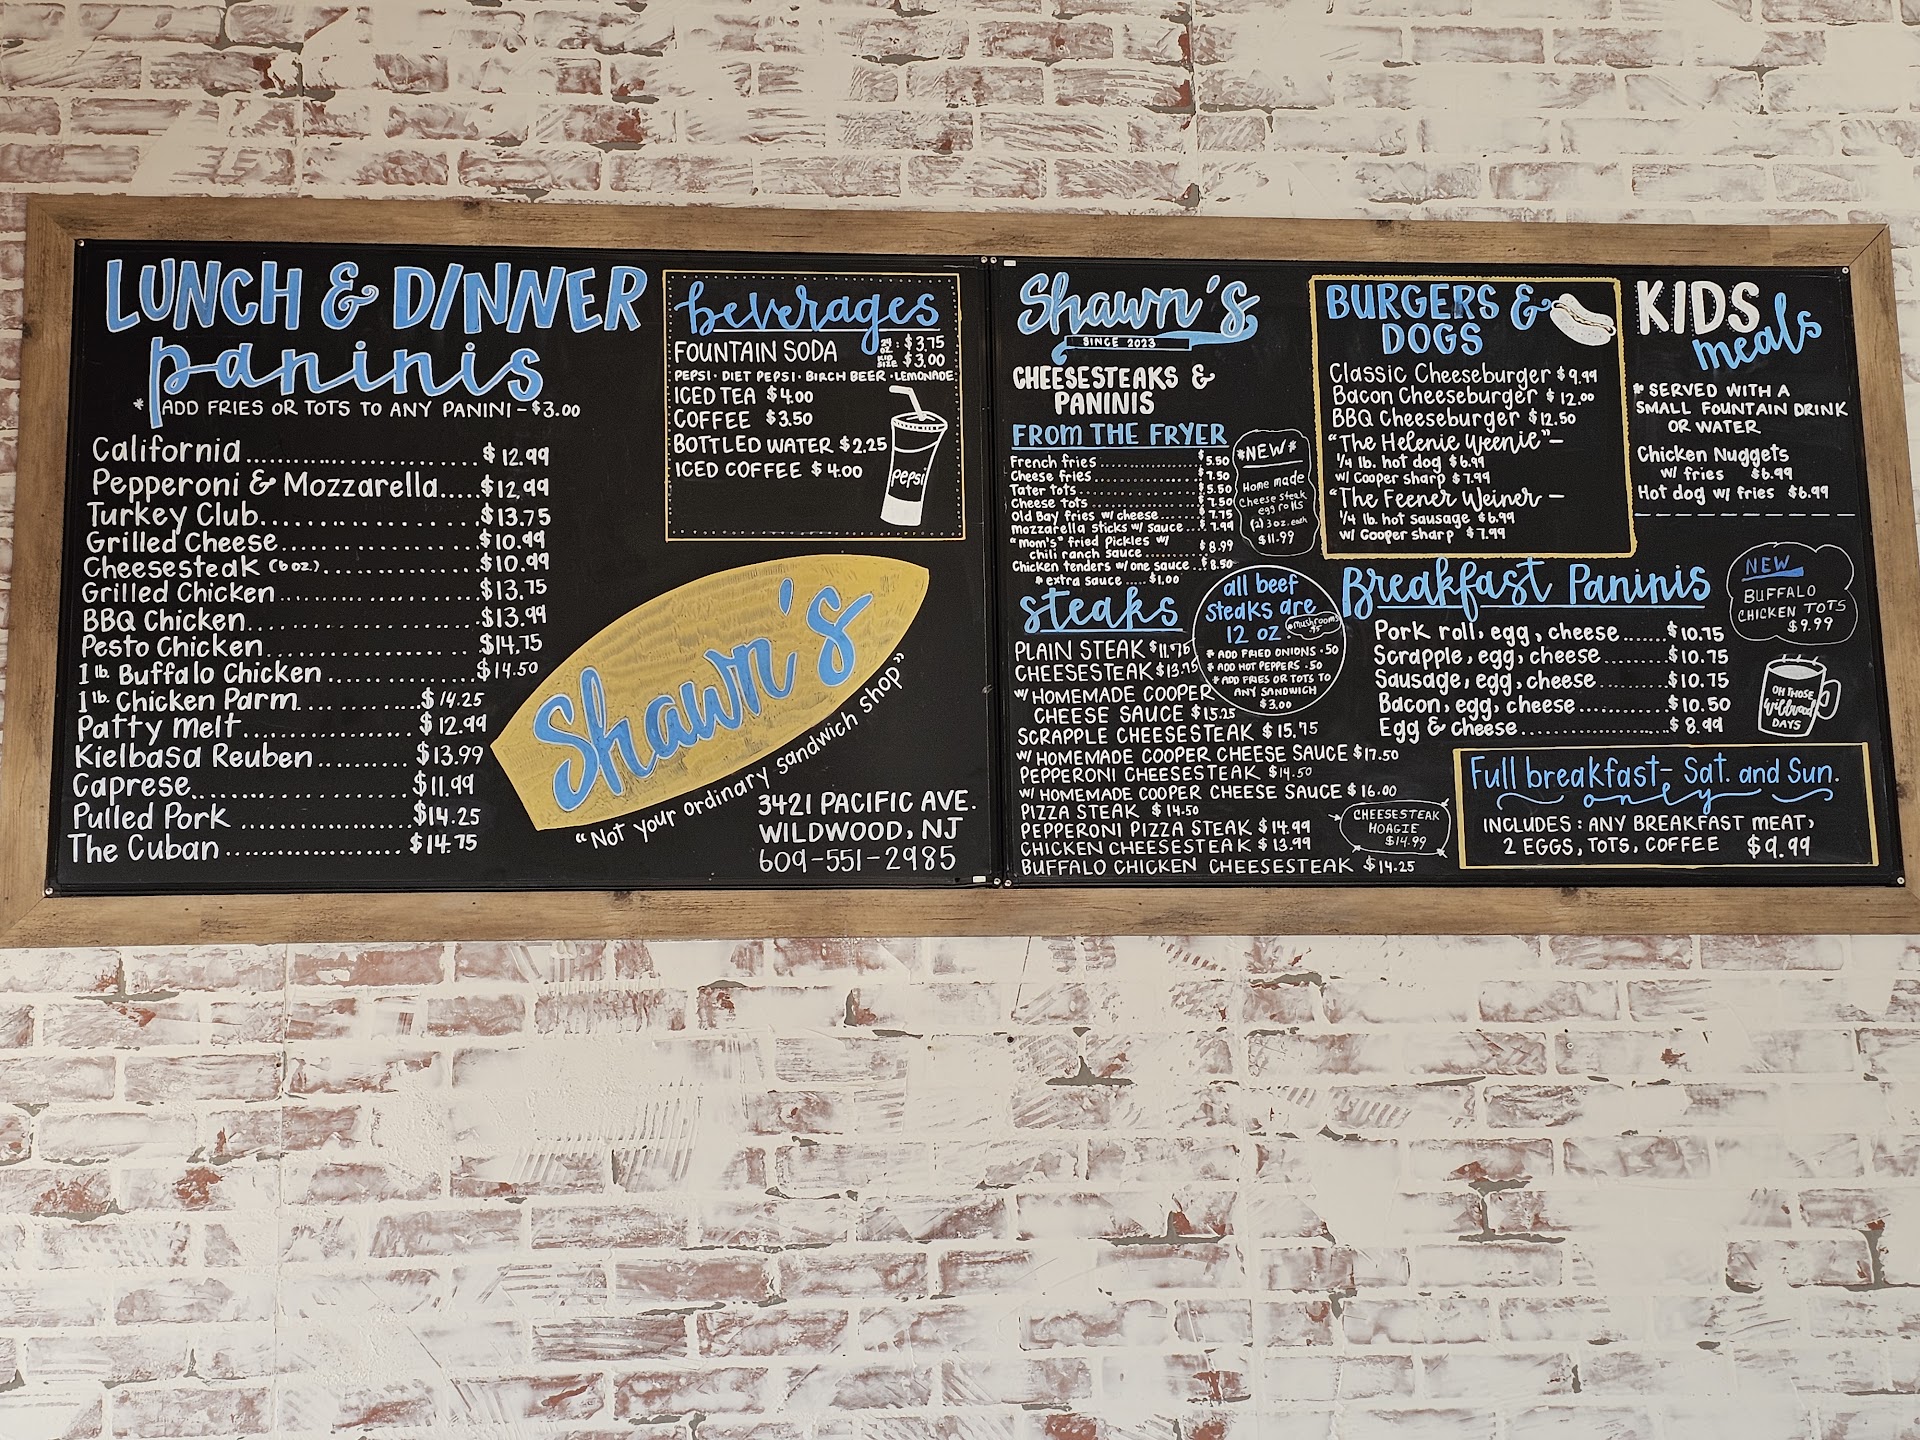 LUNCH & DINNER
paninis
* ADD FRIES OR TOTS TO ANY PANINI - $3.00
California $12.99
Pepperoni & Mozzarella..... $12.99
Turkey Club $13.75
Grilled Cheese $10.99
Cheesesteak (6oz.) $10.99
Grilled Chicken $13.75
BBQ Chicken $13.99
Pesto Chicken $14.75
1 lb. Buffalo Chicken $14.50
1 lb. Chicken Parm $14.25
Patty melt $12.99
Kielbasa Reuben $13.99
Caprese $11.99
Pulled Pork $14.25
The Cuban $14.75
beverages
FOUNTAIN SODA 24 OZ. : $3.75
KID SIZE $3.00
PEPSI · DIET PEPSI · BIRCH BEER · LEMONADE
ICED TEA $4.00
COFFEE $3.50
BOTTLED WATER $2.25
ICED COFFEE $4.00
pepsi
Shawn's
"Not your ordinary sandwich shop"
3421 PACIFIC AVE.
WILDWOOD, NJ
609-551-2985
Shawn's
SINCE 2023
CHEESESTEAKS &
PANINIS
FROM THE FRYER
French fries $5.50
Cheese fries $7.50
Tater tots $5.50
Cheese tots $7.50
Old Bay fries w/ cheese $7.75
mozzarella sticks w/ sauce... $7.99
"mom's" fried pickles w/
chili ranch sauce $8.99
Chicken tenders w/ one sauce .. $8.50
* extra sauce ..... $1.00
*NEW*
Home made
Cheese steak
egg rolls
(2) 3 oz. each
$11.99
steaks
PLAIN STEAK $11.75
CHEESESTEAK $13.75
w/ HOMEMADE COOPER
CHEESE SAUCE $15.25
SCRAPPLE CHEESESTEAK $15.75
w/ HOMEMADE COOPER CHEESE SAUCE $17.50
PEPPERONI CHEESESTEAK $14.50
w/ HOMEMADE COOPER CHEESE SAUCE $16.00
PIZZA STEAK $14.50
PEPPERONI PIZZA STEAK $14.99
CHICKEN CHEESESTEAK $13.99
BUFFALO CHICKEN CHEESESTEAK $14.25
all beef
steaks are
12 oz
mushrooms
.75
* ADD FRIED ONIONS .50
* ADD HOT PEPPERS .50
* ADD FRIES OR TOTS TO
ANY SANDWICH
$3.00
CHEESESTEAK
HOAGIE
$14.99
BURGERS &
DOGS
Classic Cheeseburger $9.99
Bacon Cheeseburger $12.00
BBQ Cheeseburger $12.50
"The Helenie Weenie" -
1/4 lb. hot dog $6.99
w/ Cooper sharp $7.99
"The Feener Weiner -
1/4 lb. hot sausage $6.99
w/ Cooper sharp $7.99
KIDS
meals
* SERVED WITH A
SMALL FOUNTAIN DRINK
OR WATER
Chicken Nuggets
w/ fries $6.99
Hot dog w/ fries $6.99
Breakfast Paninis
Pork roll, egg, cheese ...... $10.75
Scrapple, egg, cheese $10.75
Sausage, egg, cheese $10.75
Bacon, egg, cheese $10.50
Egg & cheese $8.99
NEW
BUFFALO
CHICKEN TOTS
$9.99
OH THOSE
Wildwood
DAYS
Full breakfast - Sat. and Sun.
only
INCLUDES: ANY BREAKFAST MEAT,
2 EGGS, TOTS, COFFEE $9.99